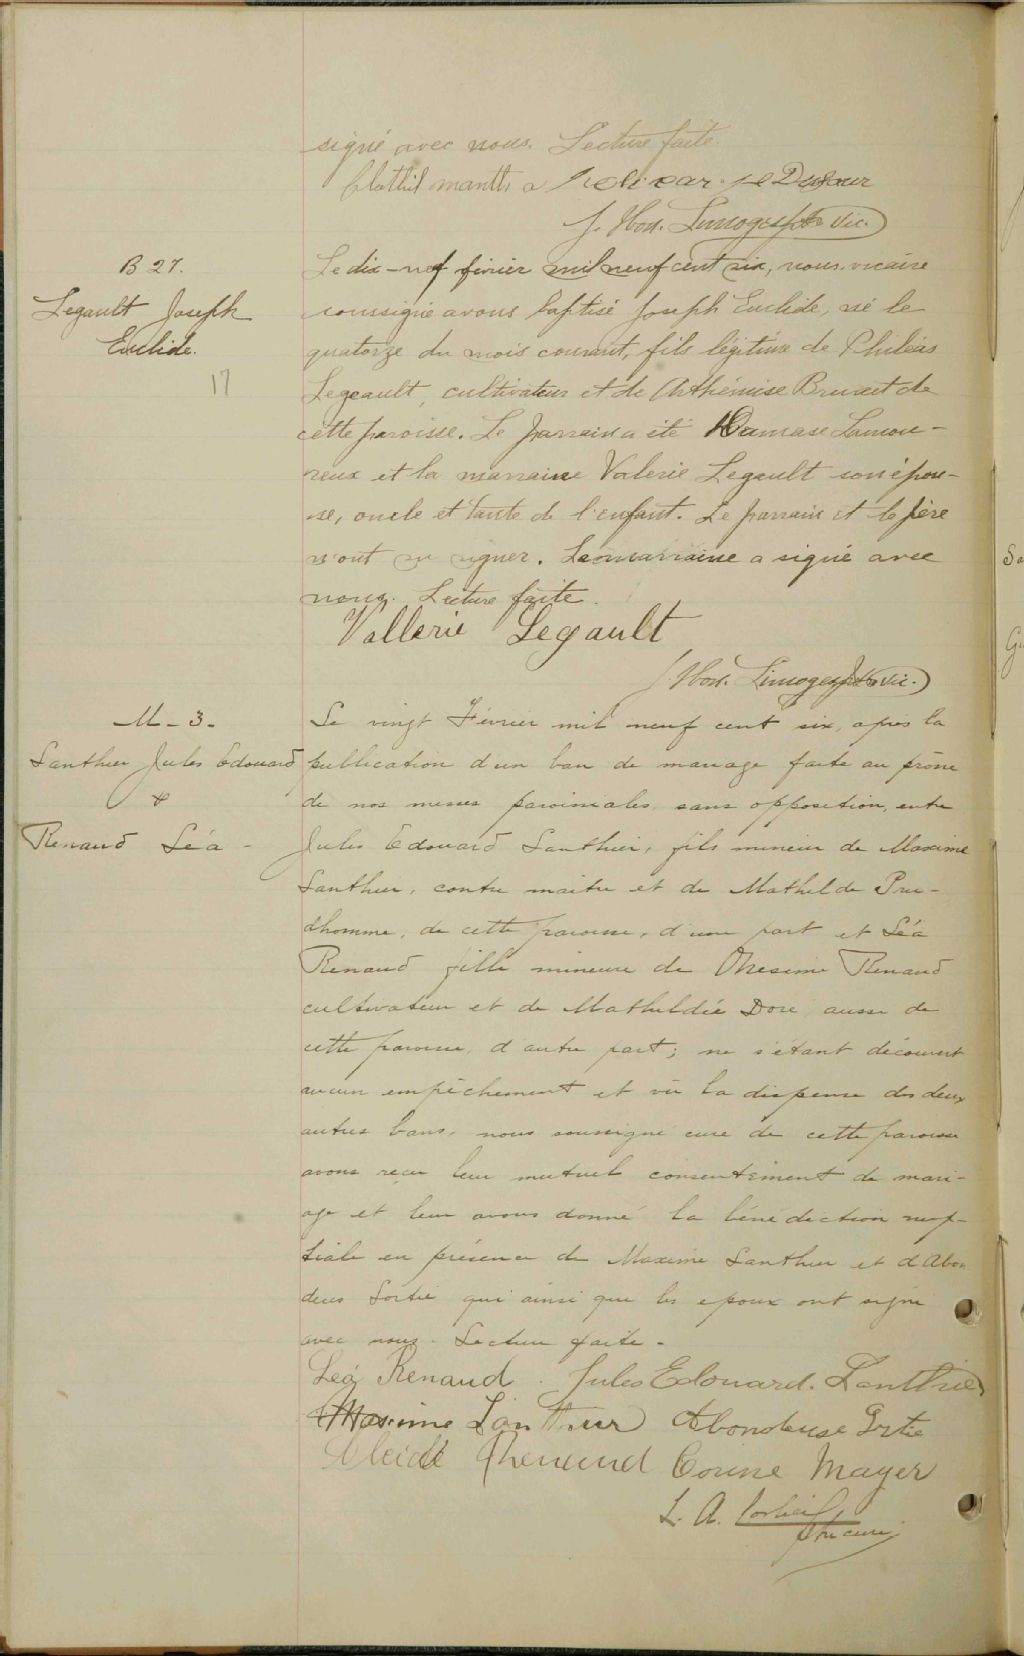 signé avec nous. Lecture faite.
J. Hon. Limoges ptre vic.
B 27.
Legault Joseph
Euclide.
17
Le dix-neuf février mil neuf cent six, nous vicaire
soussigné avons baptisé Joseph Euclide, né le
quatorze du mois courant, fils légitime de Philéas
Legeault, cultivateur et de Arthémise Brunet de
cette paroisse. Le parrain a été Damase Lamou-
reux et la marraine Valerie Legault son épou-
se, oncle et tante de l'enfant. Le parrain et le père
n'ont su signer. La marraine a signé avec
nous. Lecture faite.
Vallerie Legault
J. Hon. Limoges ptre vic.
M - 3 -
Lanthier Jules Edouard
&
Renaud Léa -
Le vingt Février mil neuf cent six, après la
publication d'un ban de mariage faite au prône
de nos messes paroissiales sans opposition, entre
Jules Edouard Lanthier, fils mineur de Maxime
Lanthier, contre maitre et de Mathilde Pru-
dhomme, de cette paroisse, d'une part et Léa
Renaud fille mineure de Onesime Renaud
cultivateur et de Mathildée Doré aussi de
cette paroisse, d'autre part; ne s'étant découvert
aucun empêchement et vu la dispense des deux
autres bans, nous soussigné curé de cette paroisse
avons reçu leur mutuel consentement de mari-
age et leur avons donné la bénédiction nup-
tiale en présence de Maxime Lanthier et d'Abon
deus Sortie qui ainsi que les epoux ont signé
avec nous. Lecture faite -
Léa Renaud. Jules Edouard. Lanthier
Maxime Lanthier Abondeuse
Corine Mayer
L. A.
ptre curé